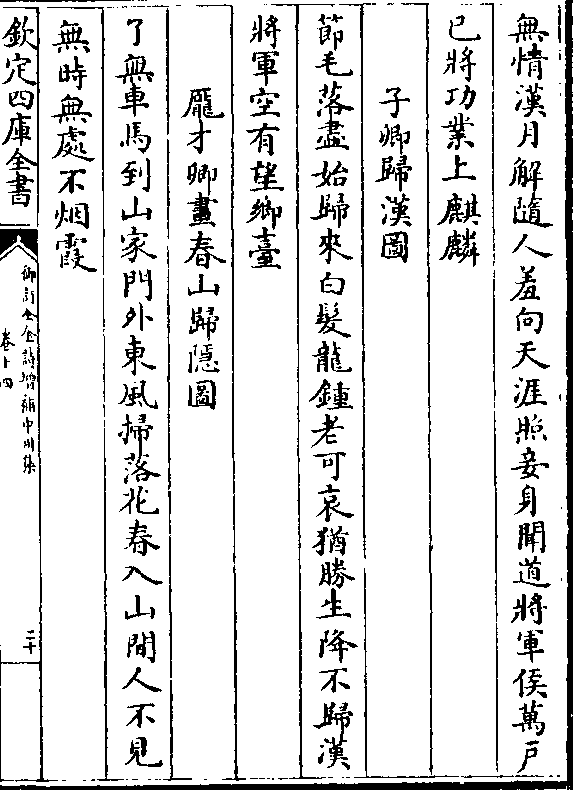 無情漢月解隨人羞向天涯照妾身聞道將軍侯萬戶
已將功業上麒麟
子卿歸漢圖
節毛落盡始歸來白髮龍鍾老可哀猶勝生降不歸漢
將軍空有望鄉臺
龎才卿畫春山歸隱圖
了無車馬到山家門外東風掃落花春入山間人不見
無時無處不烟霞
欽定四庫全書
御訂全金詩增補中州集
卷十四
二十